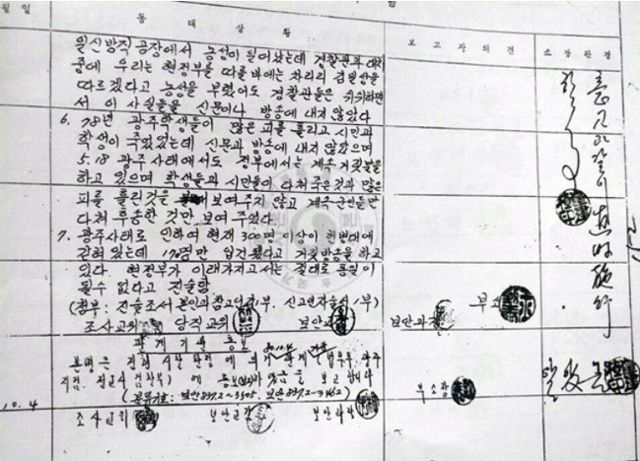 월일
동태상황
보고자의견
소장판정
일신방직 공장에서 농성이 있었는데 경찰관과 대치
중에 우리는 현정부를 따를 바에는 차라리 김일성을
따르겠다고 농성을 부렸어도 경찰관들은 쉬쉬하면
서 이 사실들을 신문이나 방송에 내지 않았다
6. 78년 광주학생들이 많은 피를 흘리고 시민과
학생이 죽었었는데 신문과 방송에 내지 않았으며
5.18 광주사태에서도 정부에서는 계속 거짓말을
하고 있으며 학생들과 시민들이 다쳐 죽은것과 많은
피를 흘린것을 보여주지 않고 계속 군인들만
다쳐 후송한 것만 보여 주었다
7. 광주사태로 인하여 현재 300명 이상이 헌병대에
갇혀 있는데 170명만 입건 됐다고 거짓방송을 하고
있다. 현정부가 이래가지고서는 절대로 통일이
될수 없다고 진술함
(첨부: 진술조서 본인과 참고인 각1부. 신고인자술서 1부)
조사교위 당직교위 보안과 보안과장 부소
관계기관 통보
본명은 전기 시찰 판정에 의거 관계
에 통보 있음을 보고 합니다
10.4 조사교위 보안교감 보안과장 부소장